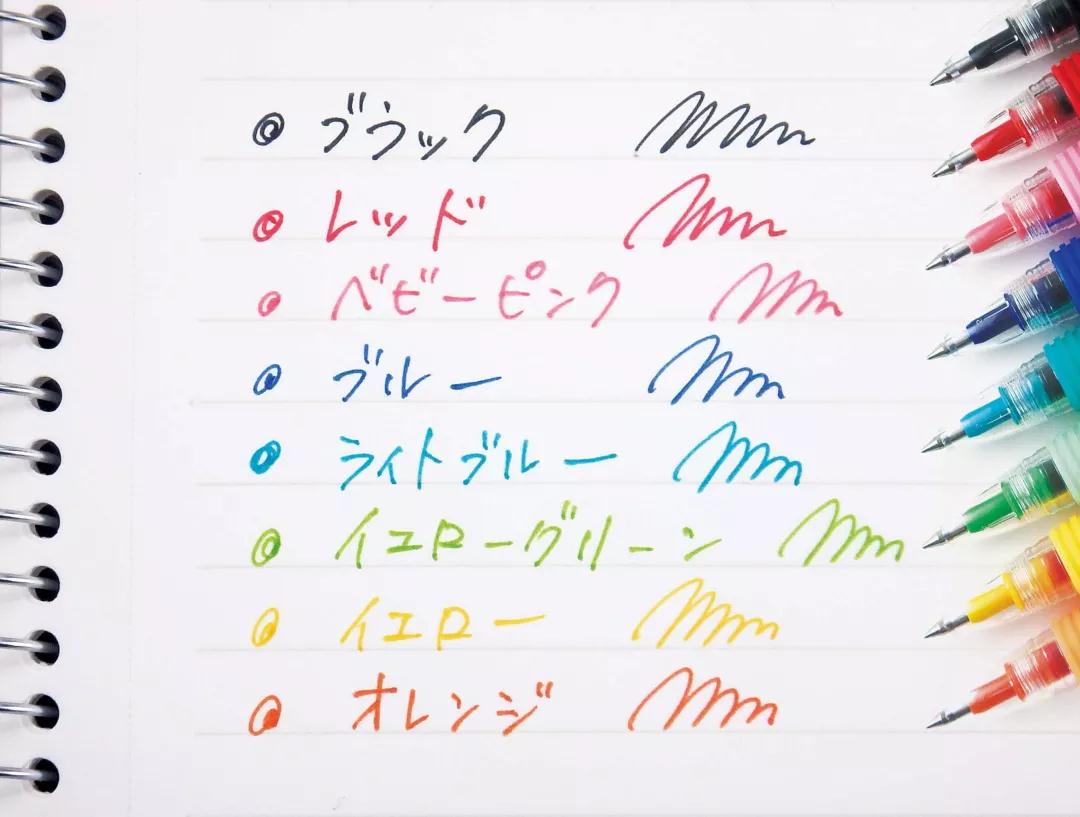 ブラック
レッド
ベビーピンク
ブルー
ライトブルー
イエローグリーン
イエロー
オレンジ